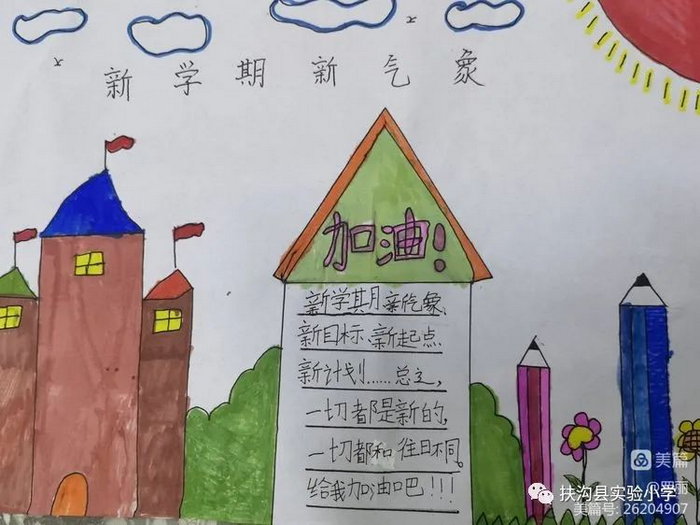 新学期新气象
加油!
新学期新气象、
新目标、新起点
新计划......总之,
一切都是新的,
一切都和往日不同。
给我加油吧!!!
美篇
@罗丽
扶沟县实验小学
美篇号: 26204907